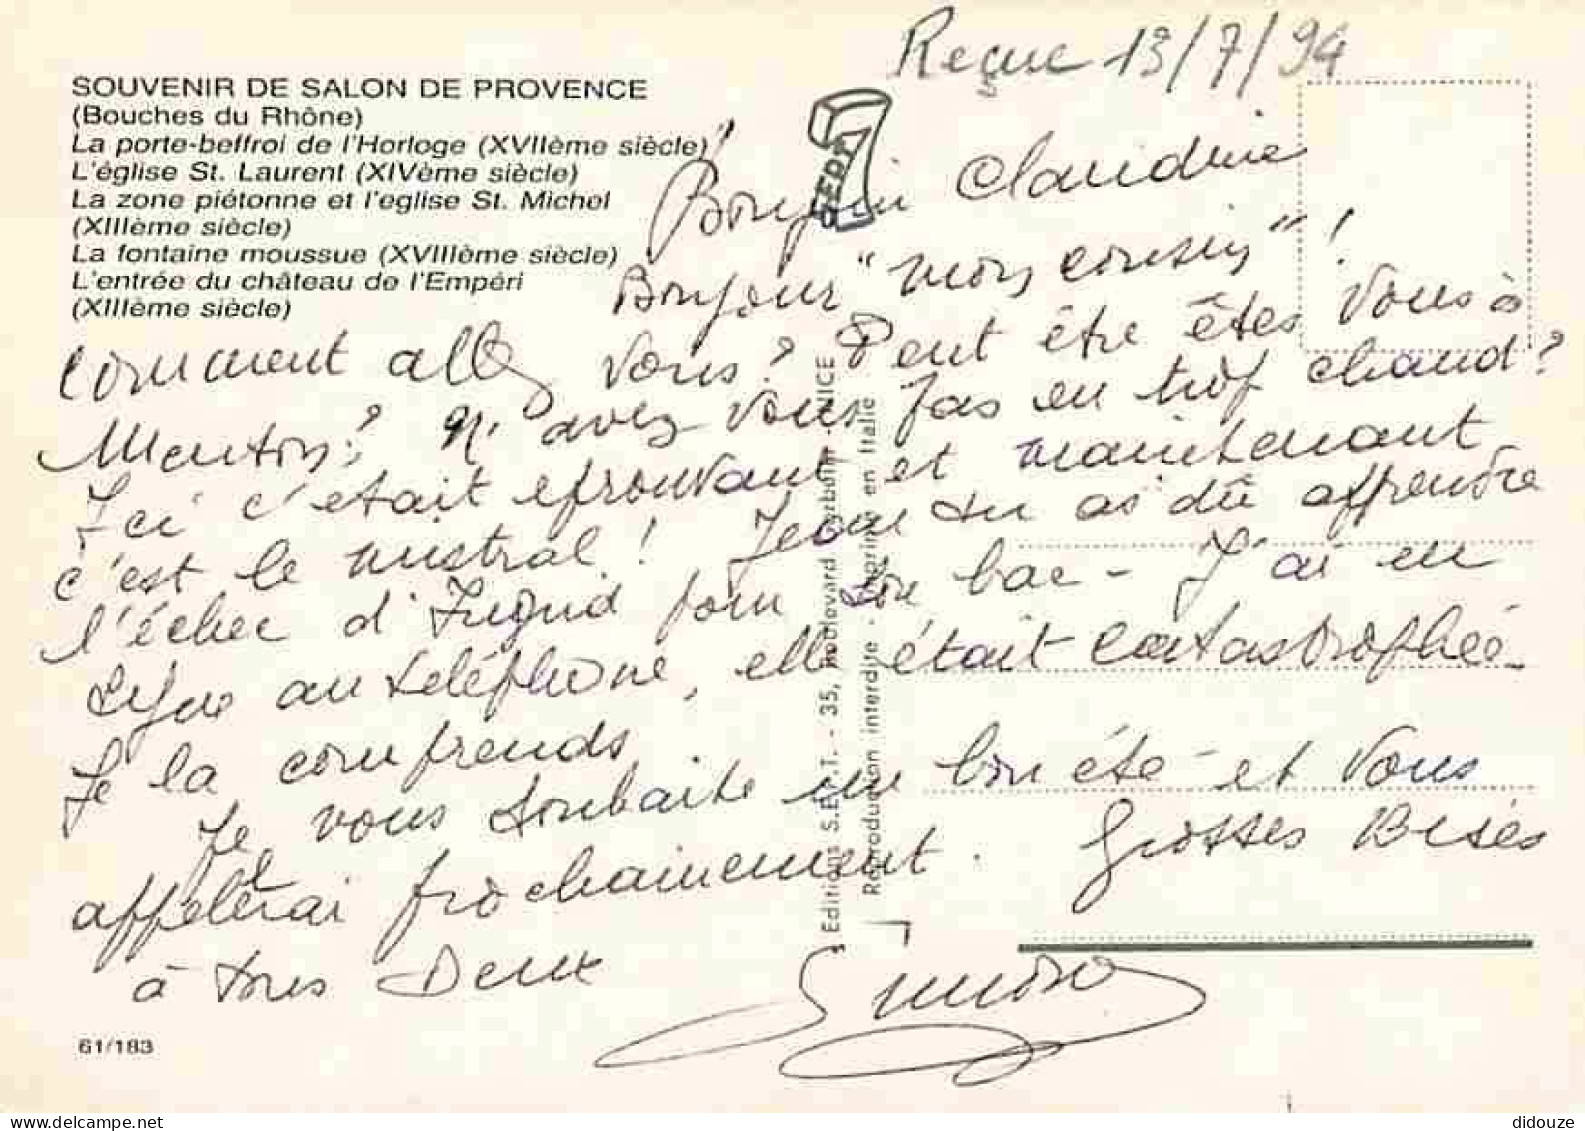 Reçue 13/7/94
SOUVENIR DE SALON DE PROVENCE
(Bouches du Rhône)
La porte-beffroi de l'Horloge (XVIIème siècle)
L'église St. Laurent (XIVème siècle)
La zone piétonne et l'eglise St. Michel
(XIIIème siècle)
La fontaine moussue (XVIIIème siècle)
L'entrée du château de l'Empéri
(XIIIème siècle)
Bonjour Claudine
Bonjour "mon cousin" !
Comment allez vous ? Peut être êtes vous à
Menton ? N'avez vous pas eu trop chaud ?
Ici c'était éprouvant et maintenant
c'est le mistral ! Jean tu as dû apprendre
l'échec d'Ingrid pour son bac - J'ai eu
au téléphone, elle était catastrophée
Je la comprends
Je vous souhaite un bon été et vous
appelerai prochainement. Grosses Bises
à tous Deux
Editions S.E.P.T. - 35, Boulevard - NICE
Reproduction interdite - Imprimé en Italie
61/183
didouze